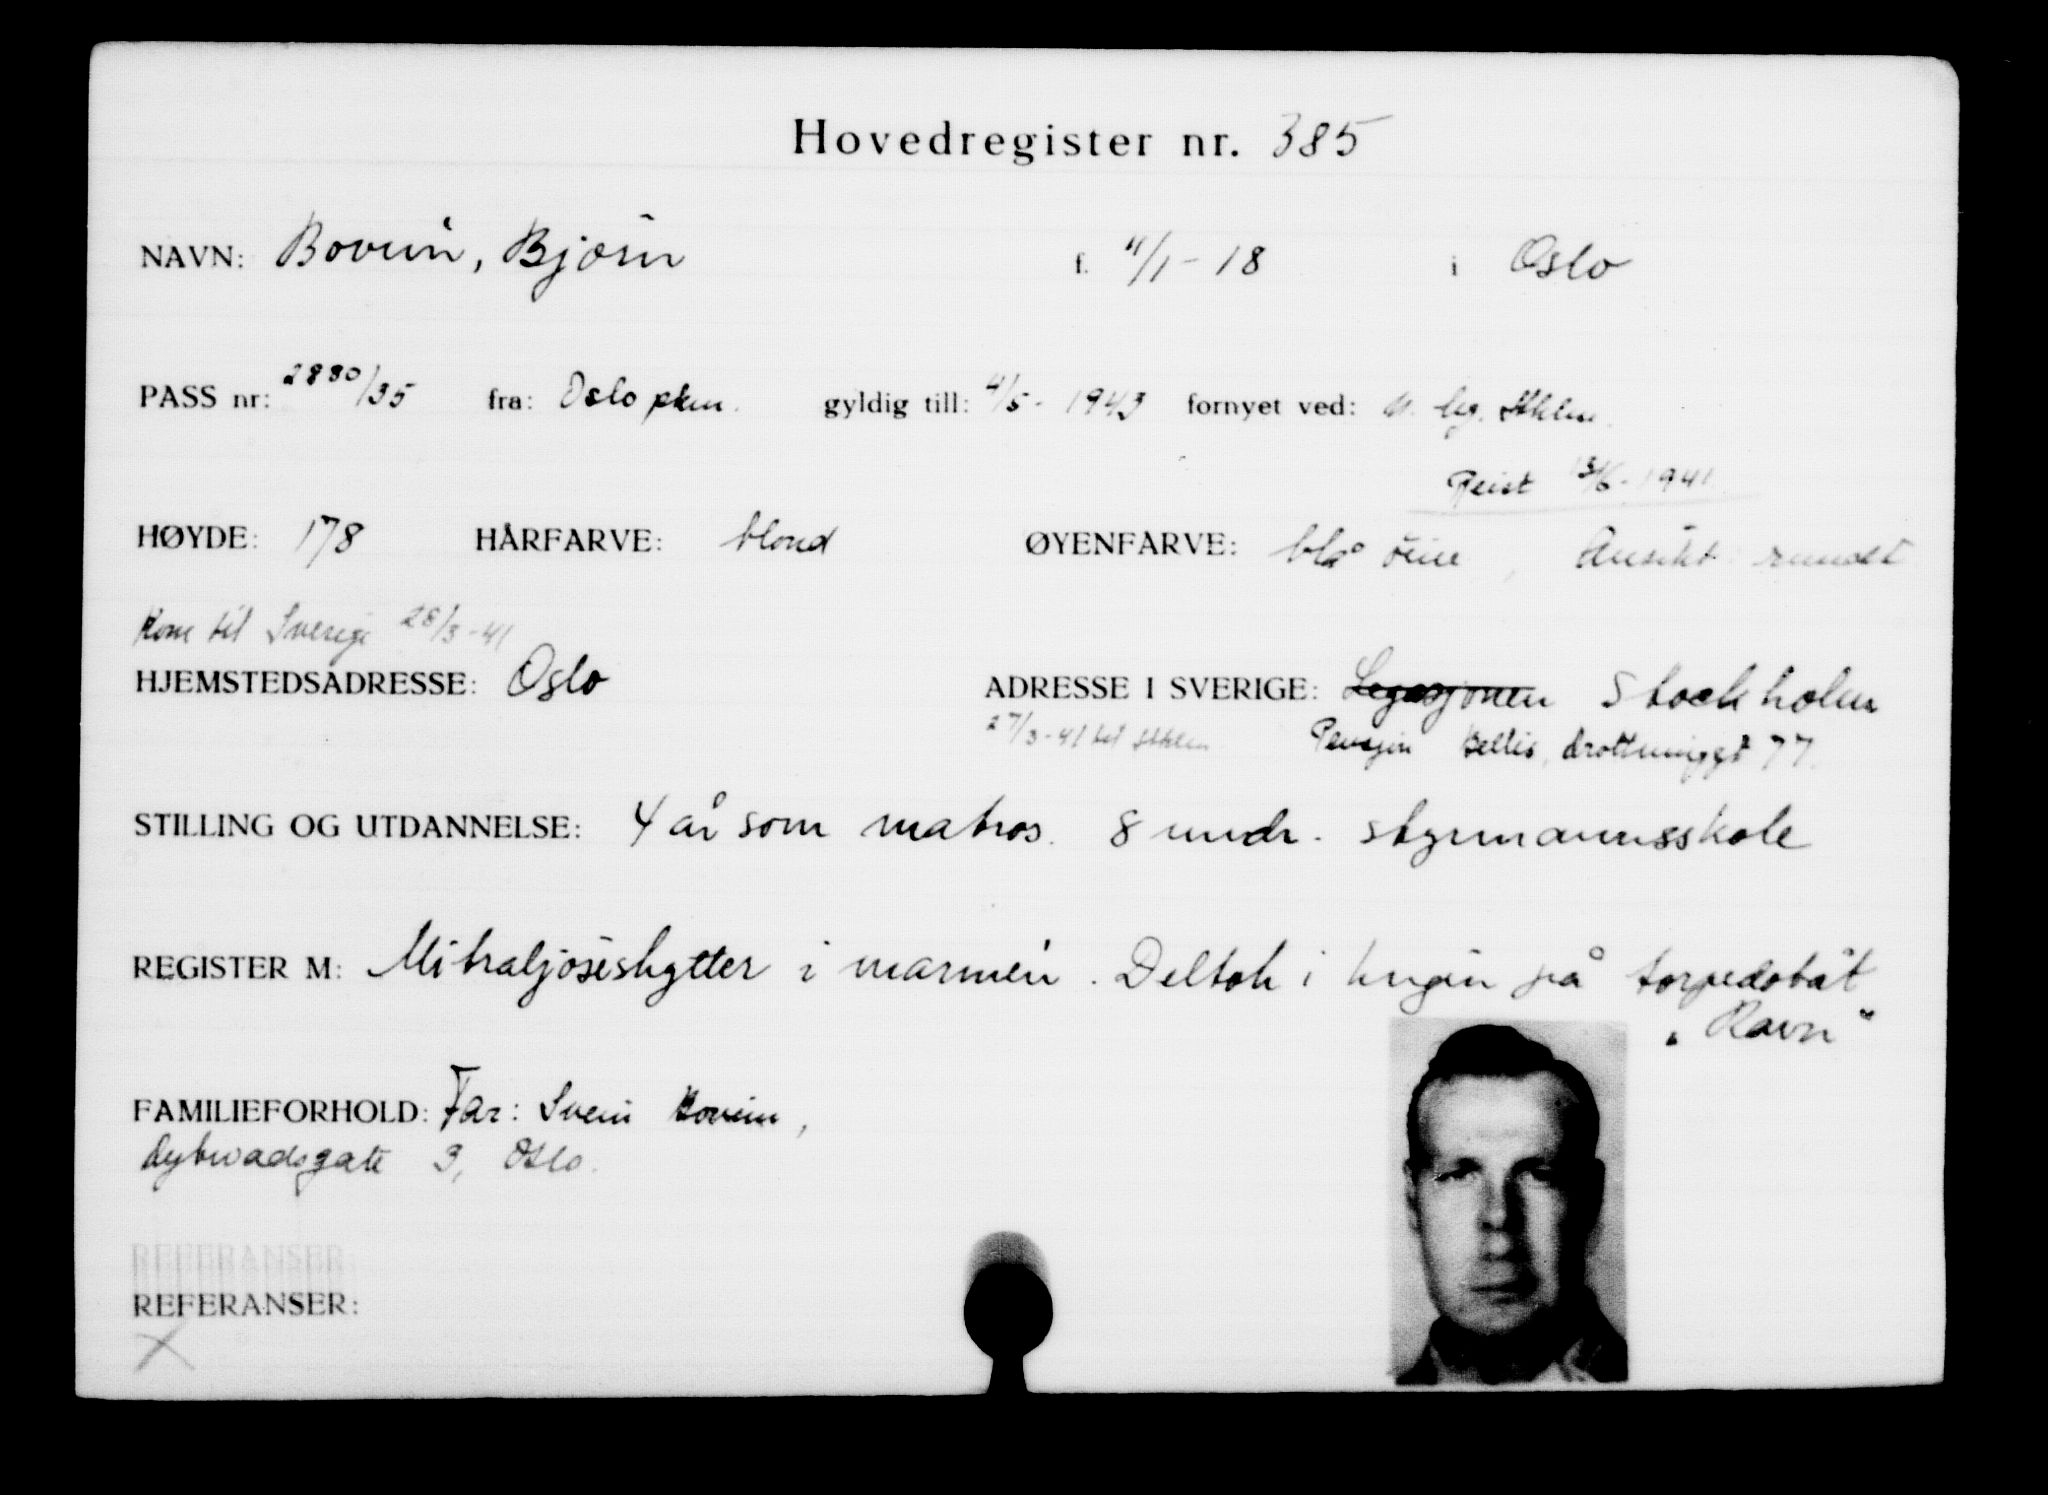 Hovedregister nr. 385
NAVN: Bovim, Bjørn f. 4/1-18 i Oslo
PASS nr: 2880/35 fra: Oslo pkm. gyldig till: 4/5-1943 fornyet ved: n. leg. Sthlm.
Reist 13/6-1941
HØYDE: 178 HÅRFARVE: blond ØYENFARVE: blå öine, Ansikt rundt
Kom til Sverige 28/3-41
HJEMSTEDSADRESSE: Oslo ADRESSE I SVERIGE: Legasjonen Stockholm
27/3-41 til Sthlm Pensjon Hellis, drottninggt 77.
STILLING OG UTDANNELSE: 4 år som matros. 8 mndr. styrmannsskole
REGISTER M: Mitraljöseskytter i marinen. Deltok i krigen på torpedobåt
"Ravn"
FAMILIEFORHOLD: Far: Svein Bovim,
dybwadsgate 3, Oslo.
REFERANSER:
REFERANSER:
X